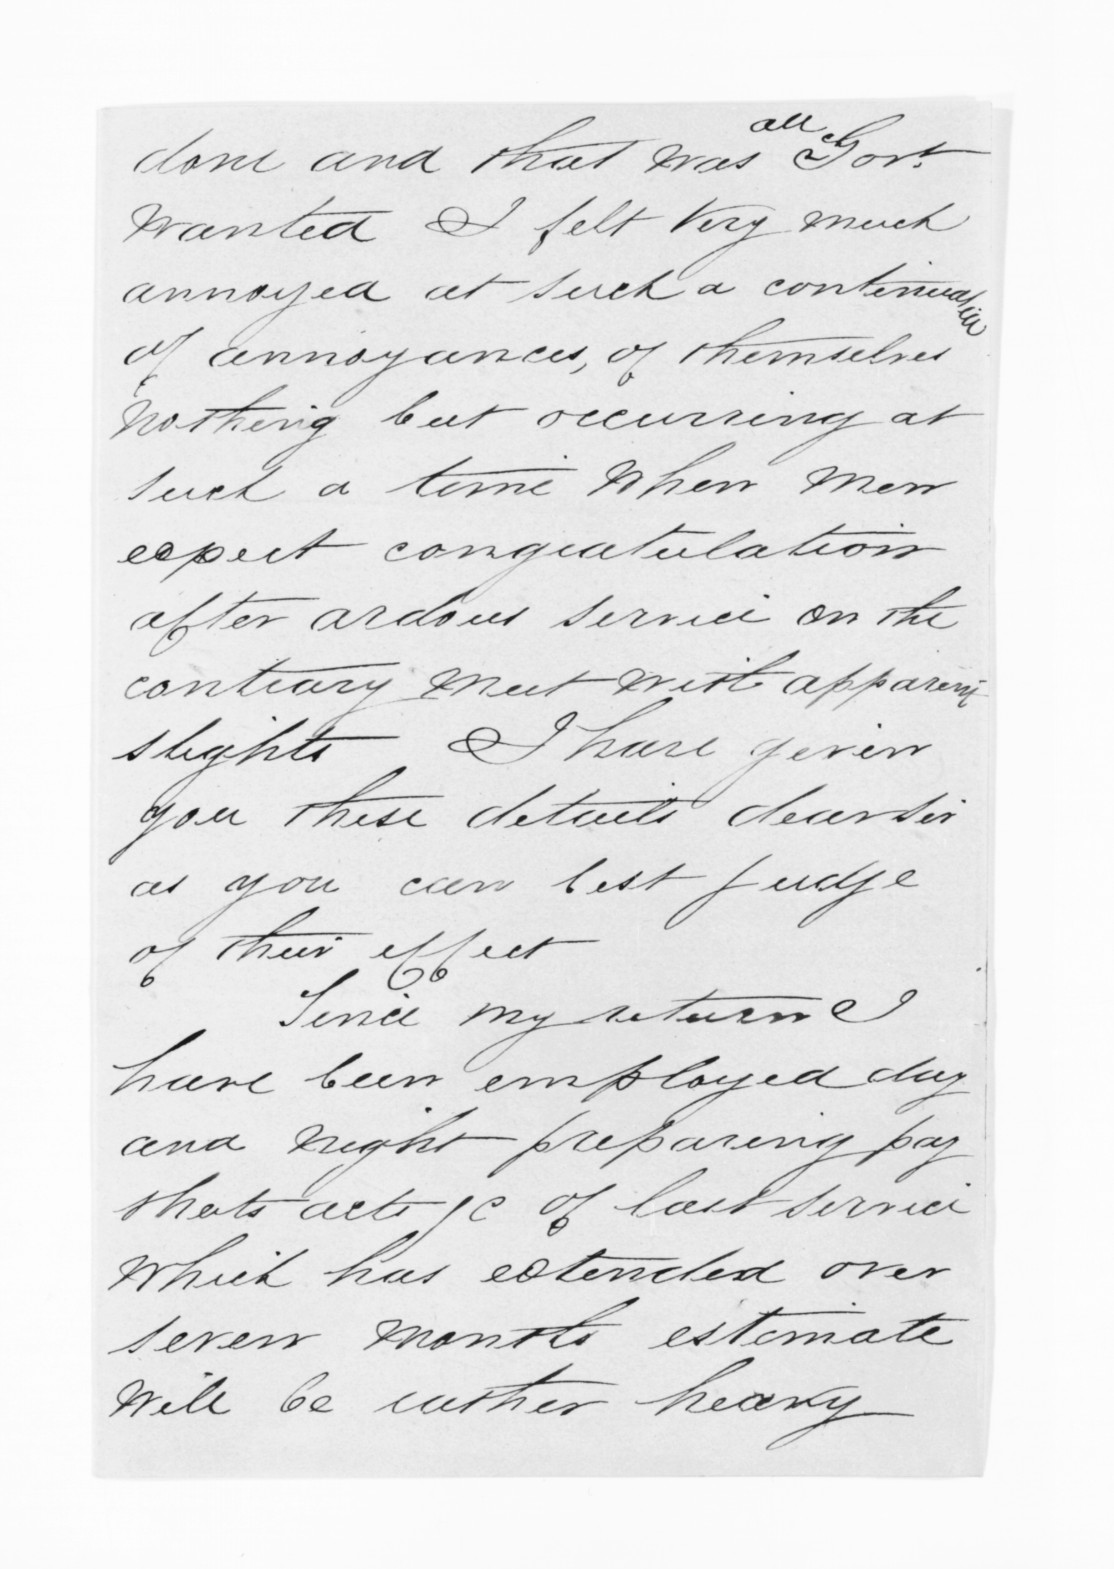 done and that was all Govt.
wanted I felt very much
annoyed at such a continuation
of annoyances, of themselves
nothing but occurring at
such a time when men
expect congratulation
after ardous service on the
contrary meet with apparent
slights I have given
you these details dear sir
as you can best judge
of their effect
Since my return I
have been employed day
and night preparing pay
shets accts &c of last service
which has extended over
seven months estimate
will be rather heavy